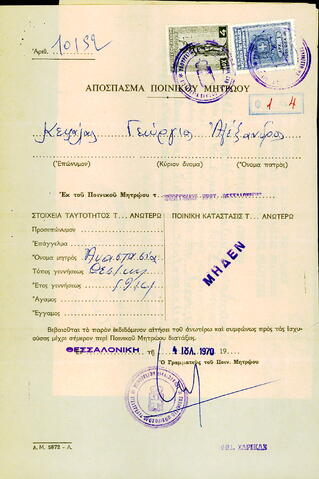 Ἀριθ. 10152
ΑΠΟΣΠΑΣΜΑ ΠΟΙΝΙΚΟΥ ΜΗΤΡΩΟΥ
0 1 4
Γεώργιος Ἀλέξανδρος
(Ἐπώνυμον) (Κύριον ὄνομα) (Ὄνομα πατρός)
Ἐκ τοῦ Ποινικοῦ Μητρώου τ.
ΣΤΟΙΧΕΙΑ ΤΑΥΤΟΤΗΤΟΣ Τ... ΑΝΩΤΕΡΩ
ΠΟΙΝΙΚΗ ΚΑΤΑΣΤΑΣΙΣ Τ... ΑΝΩΤΕΡΩ
Προσωπώνυμον
Ἐπάγγελμα
Ὄνομα μητρὸς Ἀναστασία
Τόπος γεννήσεως Θεσ/νίκη
Ἔτος γεννήσεως 1914
Ἄγαμος
Ἔγγαμος
ΜΗΔΕΝ
Βεβαιοῦται τὸ παρὸν ἐκδιδόμενον αἰτήσει τοῦ ἀνωτέρω καὶ συμφώνως πρὸς τὰς ἰσχυ-
ούσας μέχρι σήμερον περὶ Ποινικοῦ Μητρώου διατάξεις.
ΘΕΣΣΑΛΟΝΙΚΗ τῇ 4 ΙΟΥΛ. 1970 19
Ὁ Γραμματεὺς τοῦ Ποιν. Μητρώου
Α.Μ. 5872 - Λ.
ΦΩΤ. ΧΑΡΙΚΑΣ